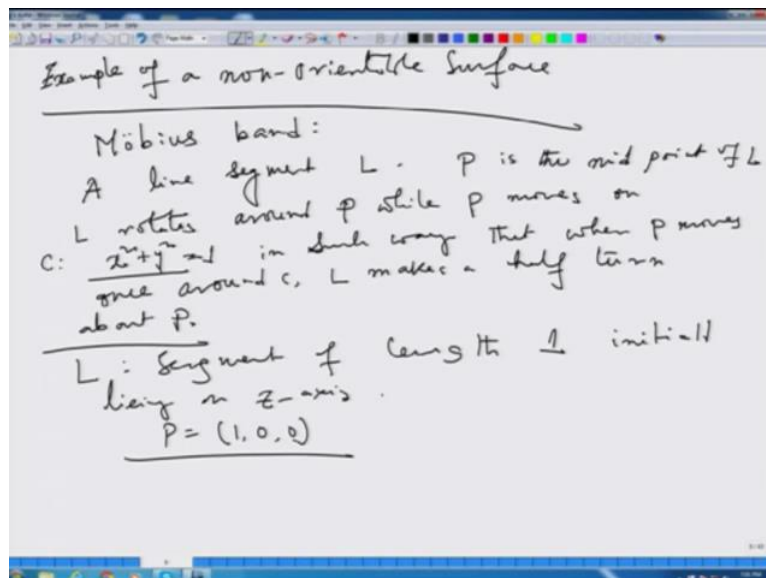 Example of a non-orientible Surface
Möbius band:
A line segment L. P is the mid point of L
L rotates around P while P moves on
C: x²+y²=1 in such way that when P moves
once around C, L makes a half turn
about P.
L: Segment of length 1 initiall
lieing on z-axis.
P = (1, 0, 0)